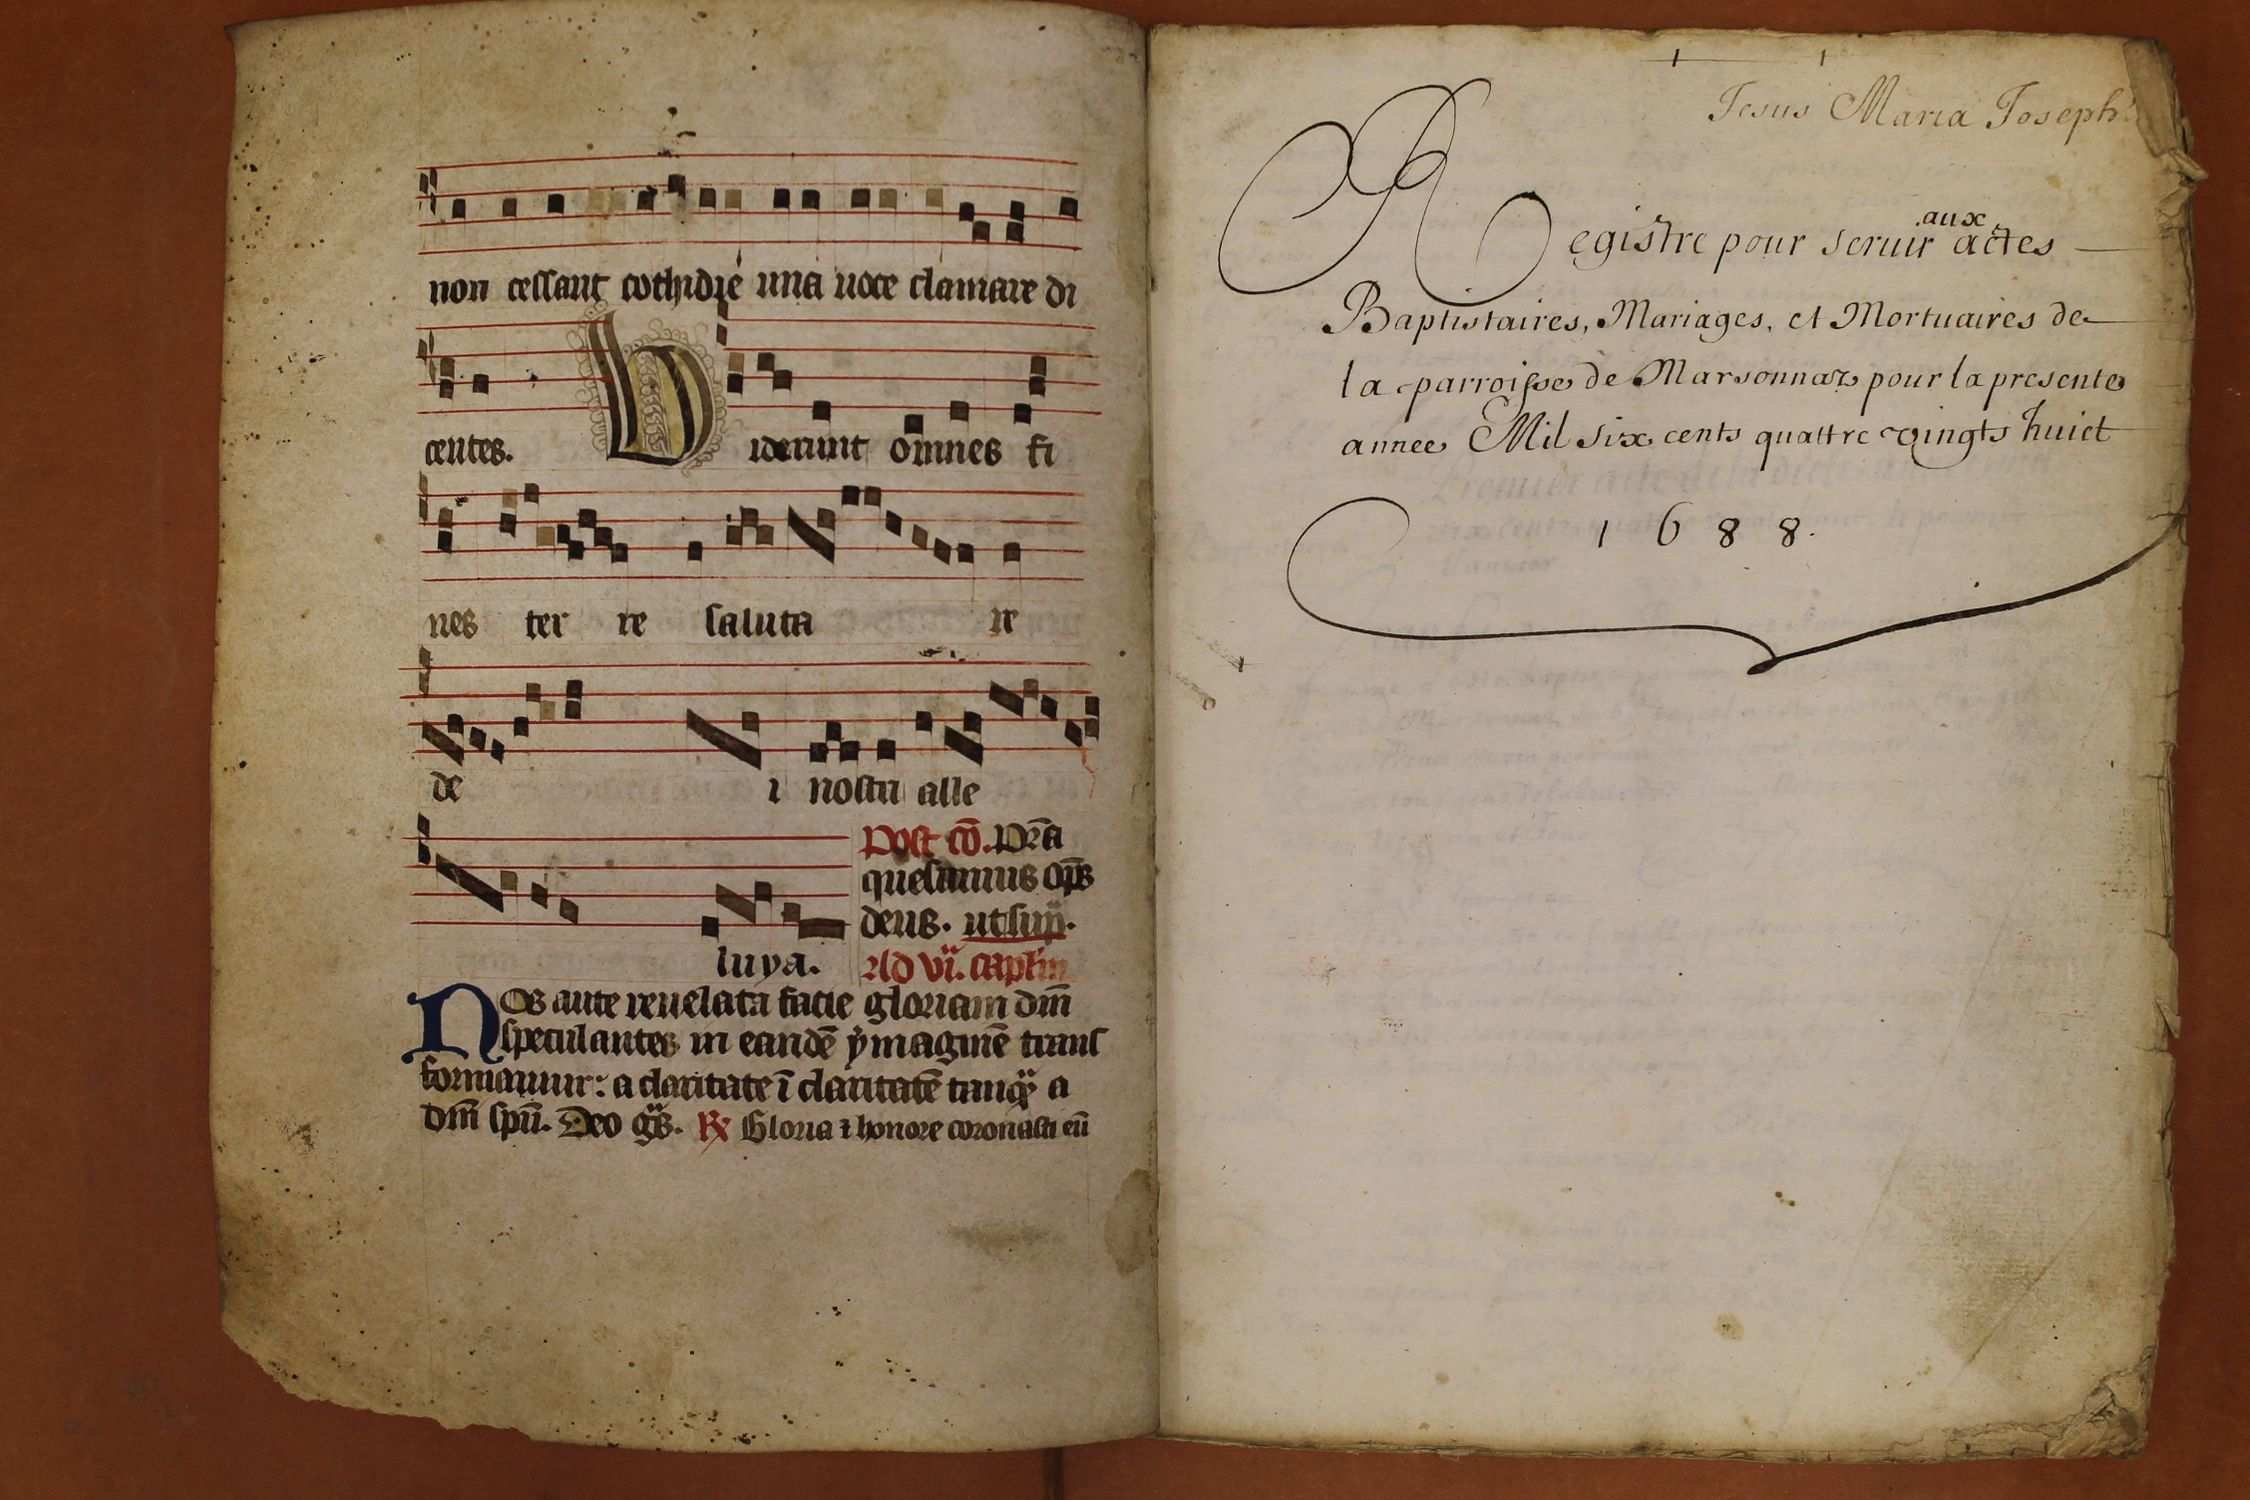 non cessant cothidie una uoce clamare di
centes. Viderunt omnes fi
nes ter re saluta re
de i nostri alle
Post cō. Pr̄a
quesumus om̄ps
deus. ut sup̄.
luya. Ad vi. capl'm
Nos aute reuelata facie gloriam dm̄
speculantes in eandē ẏmaginē trans
formamur: a claritate ī claritatē tanq̄ a
dm̄ spū. Deo gr̄s. ℟ Gloria ⁊ honore coronasti eū
Jesus Maria Joseph
aux
Registre pour seruir actes
Baptistaires, Mariages, et Mortuaires de
la parroisse de Marsonnaz pour la presente
annee Mil six cents quattre vingts huict
1688.